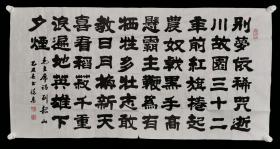 别夢依稀咒逝
川故園三十二
年前紅旗捲起
農奴戟黑手高
懸霸主鞭為有
犧牲多壯志敢
教日月換新天
喜看稻菽千重
浪遍地英雄下
夕煙
毛主席詩到韶山